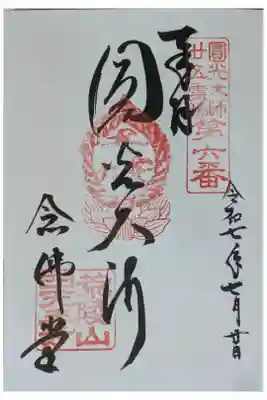 圓光大師
廿五霊場
第六番
奉拝
圓光大師
念佛堂
荒陵山
令和七年七月廿日